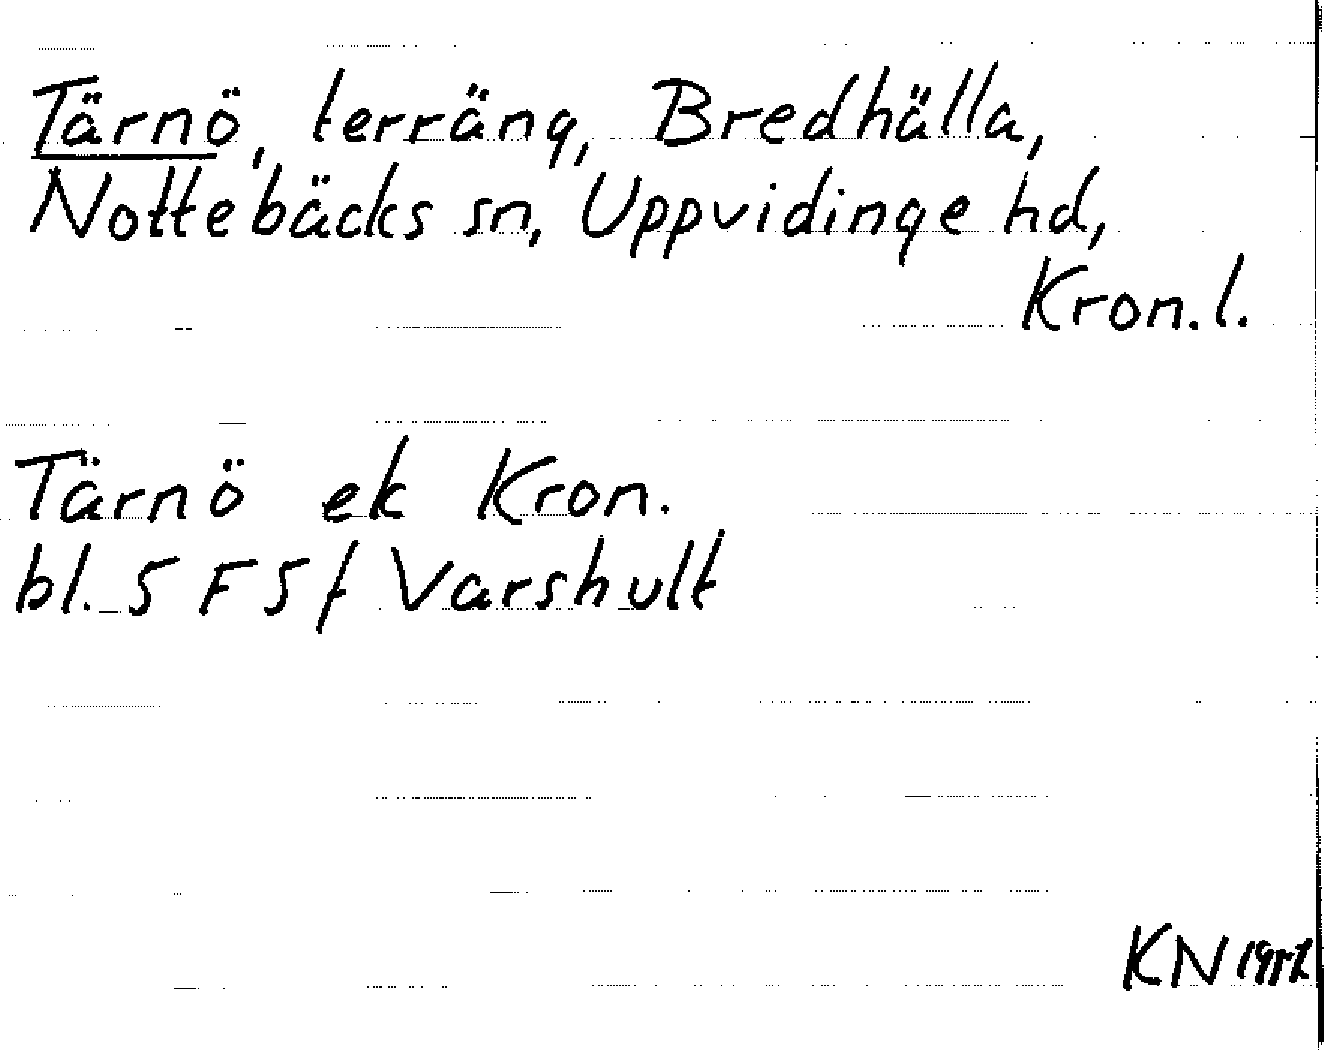 Tärnö, terräng, Bredhälla,
Nottebäcks sn, Uppvidinge hd,
Kron. l.
Tärnö ek Kron.
bl. 5 F 5 f Varshult
KN